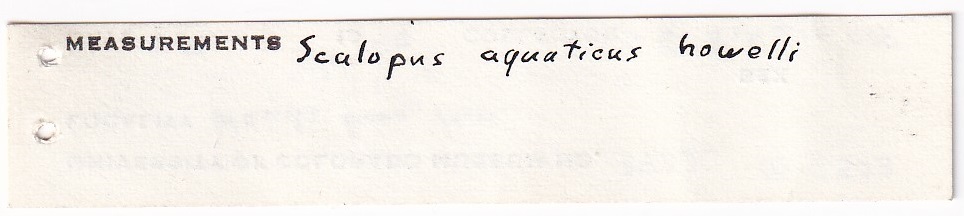 MEASUREMENTS Scalopus aquaticus howelli